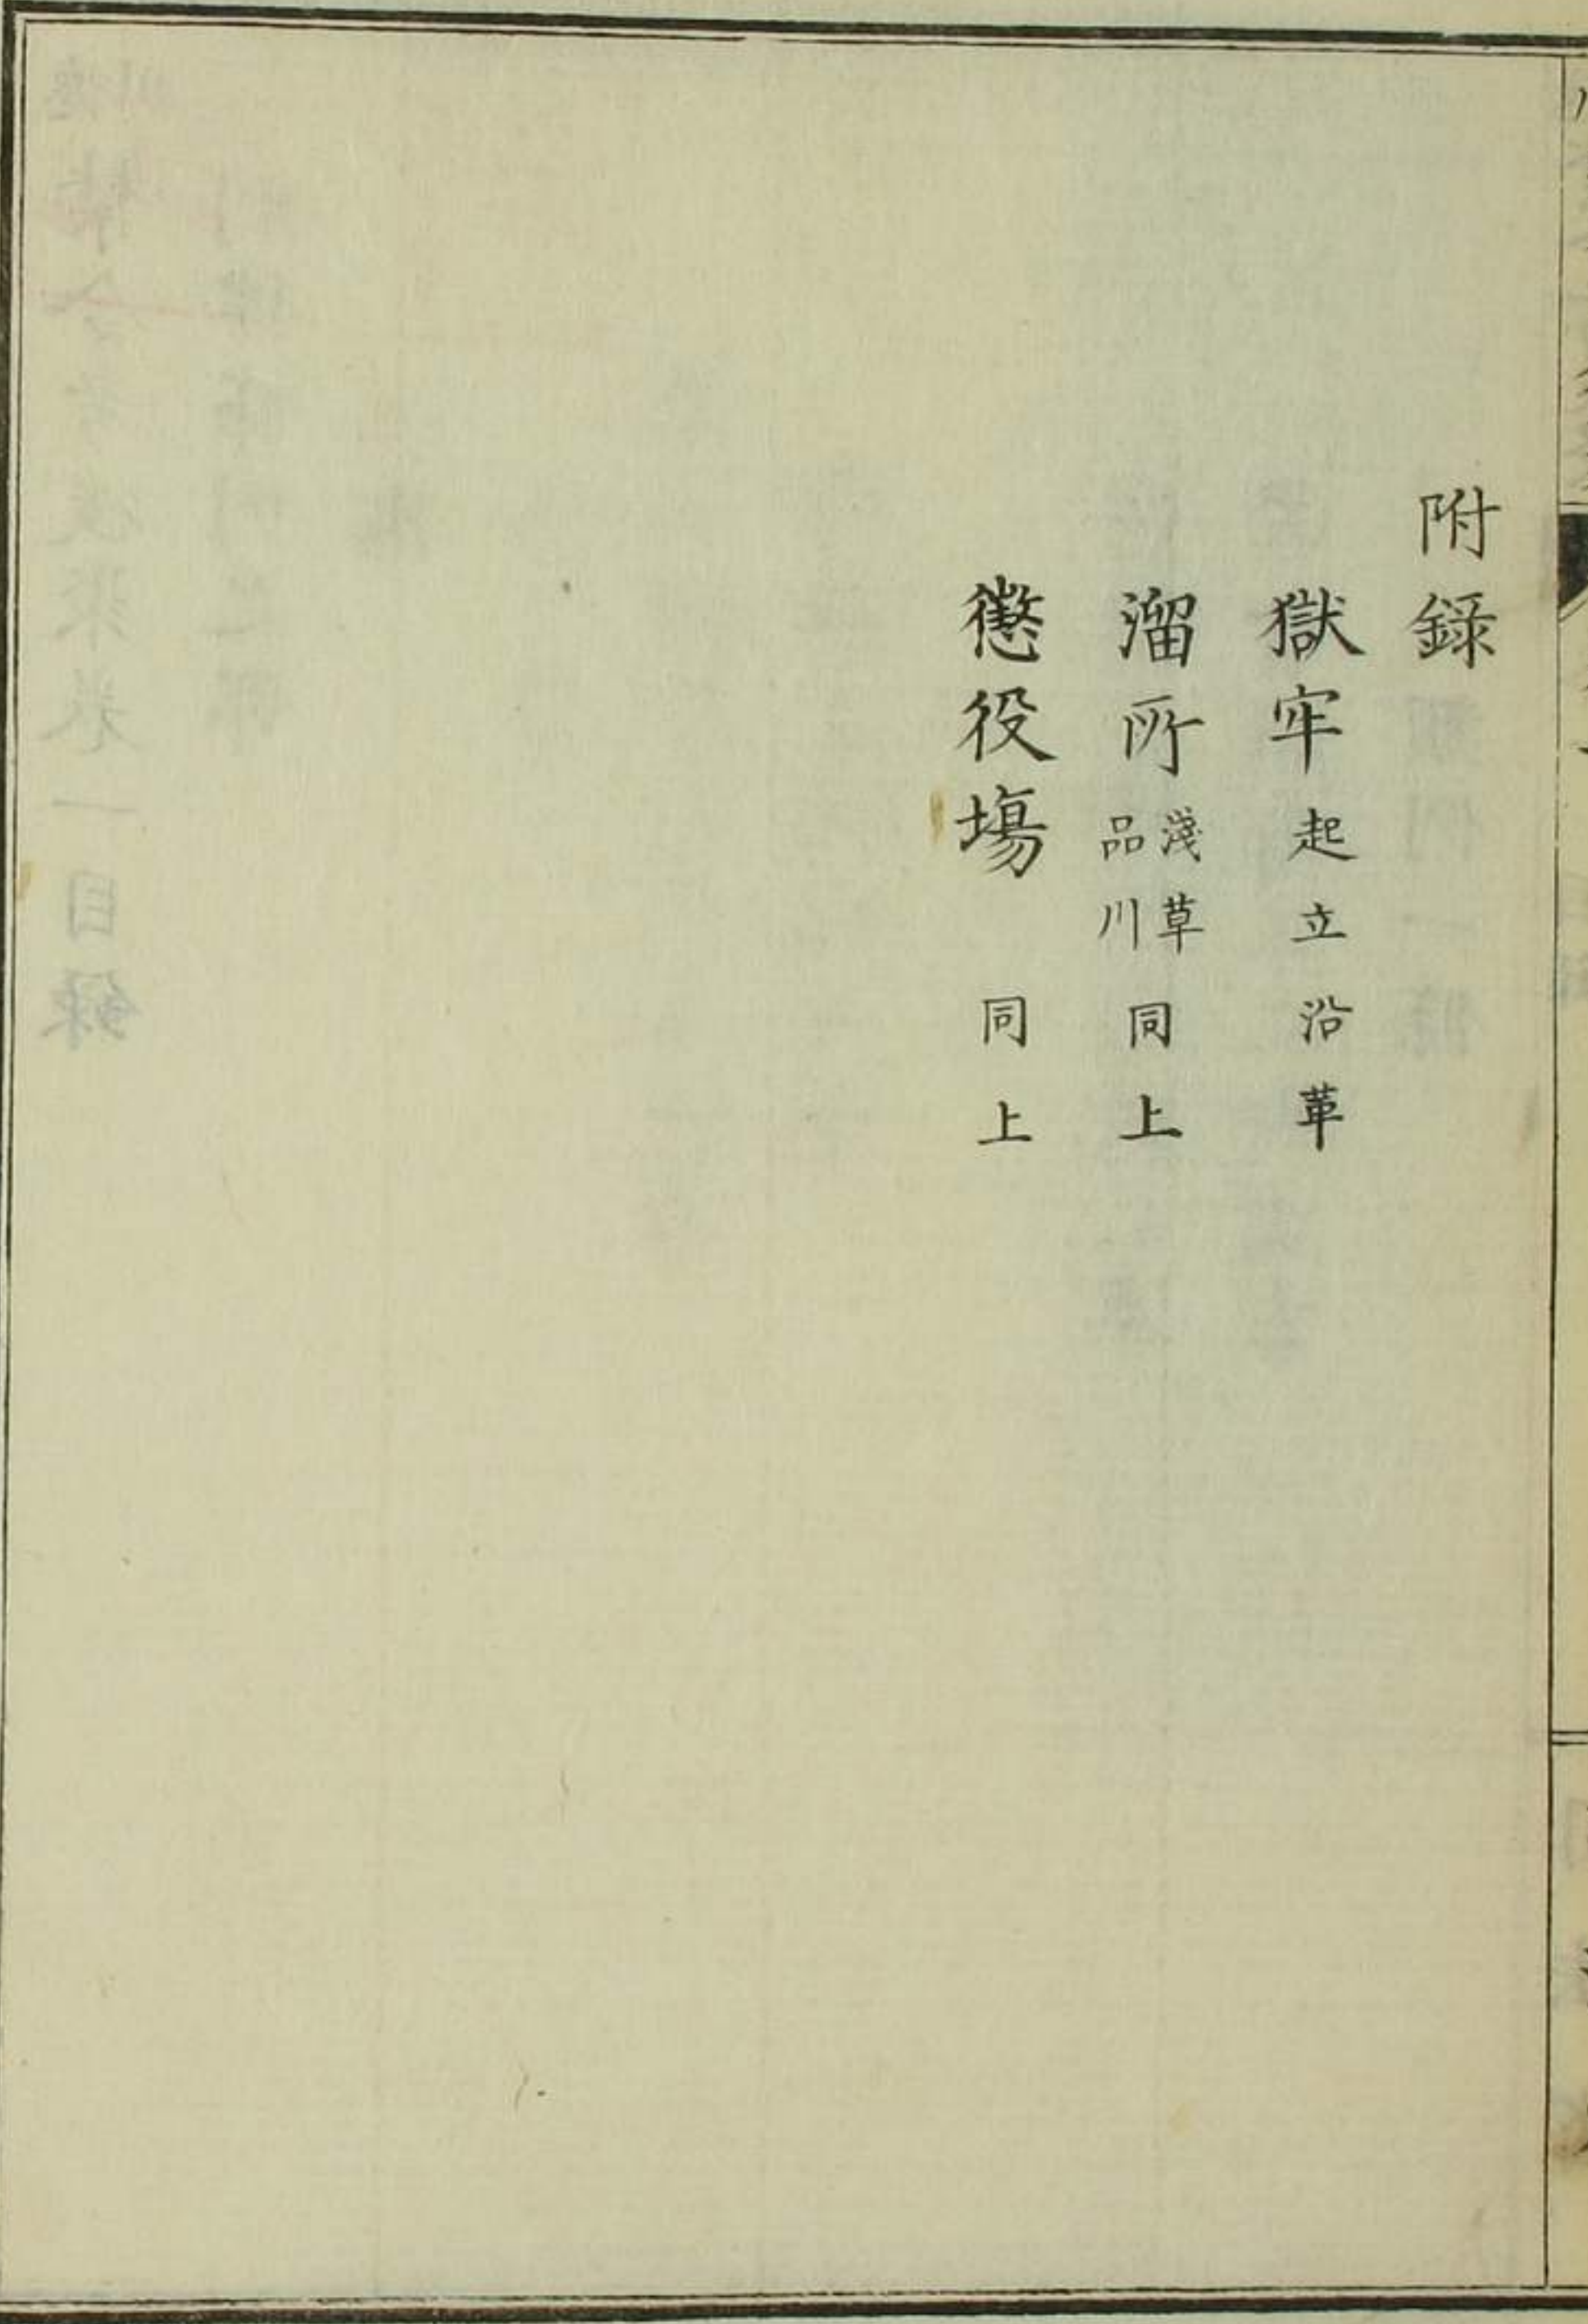 附録
獄牢 起立沿革
溜所 淺草 品川 同上
懲役場 同上